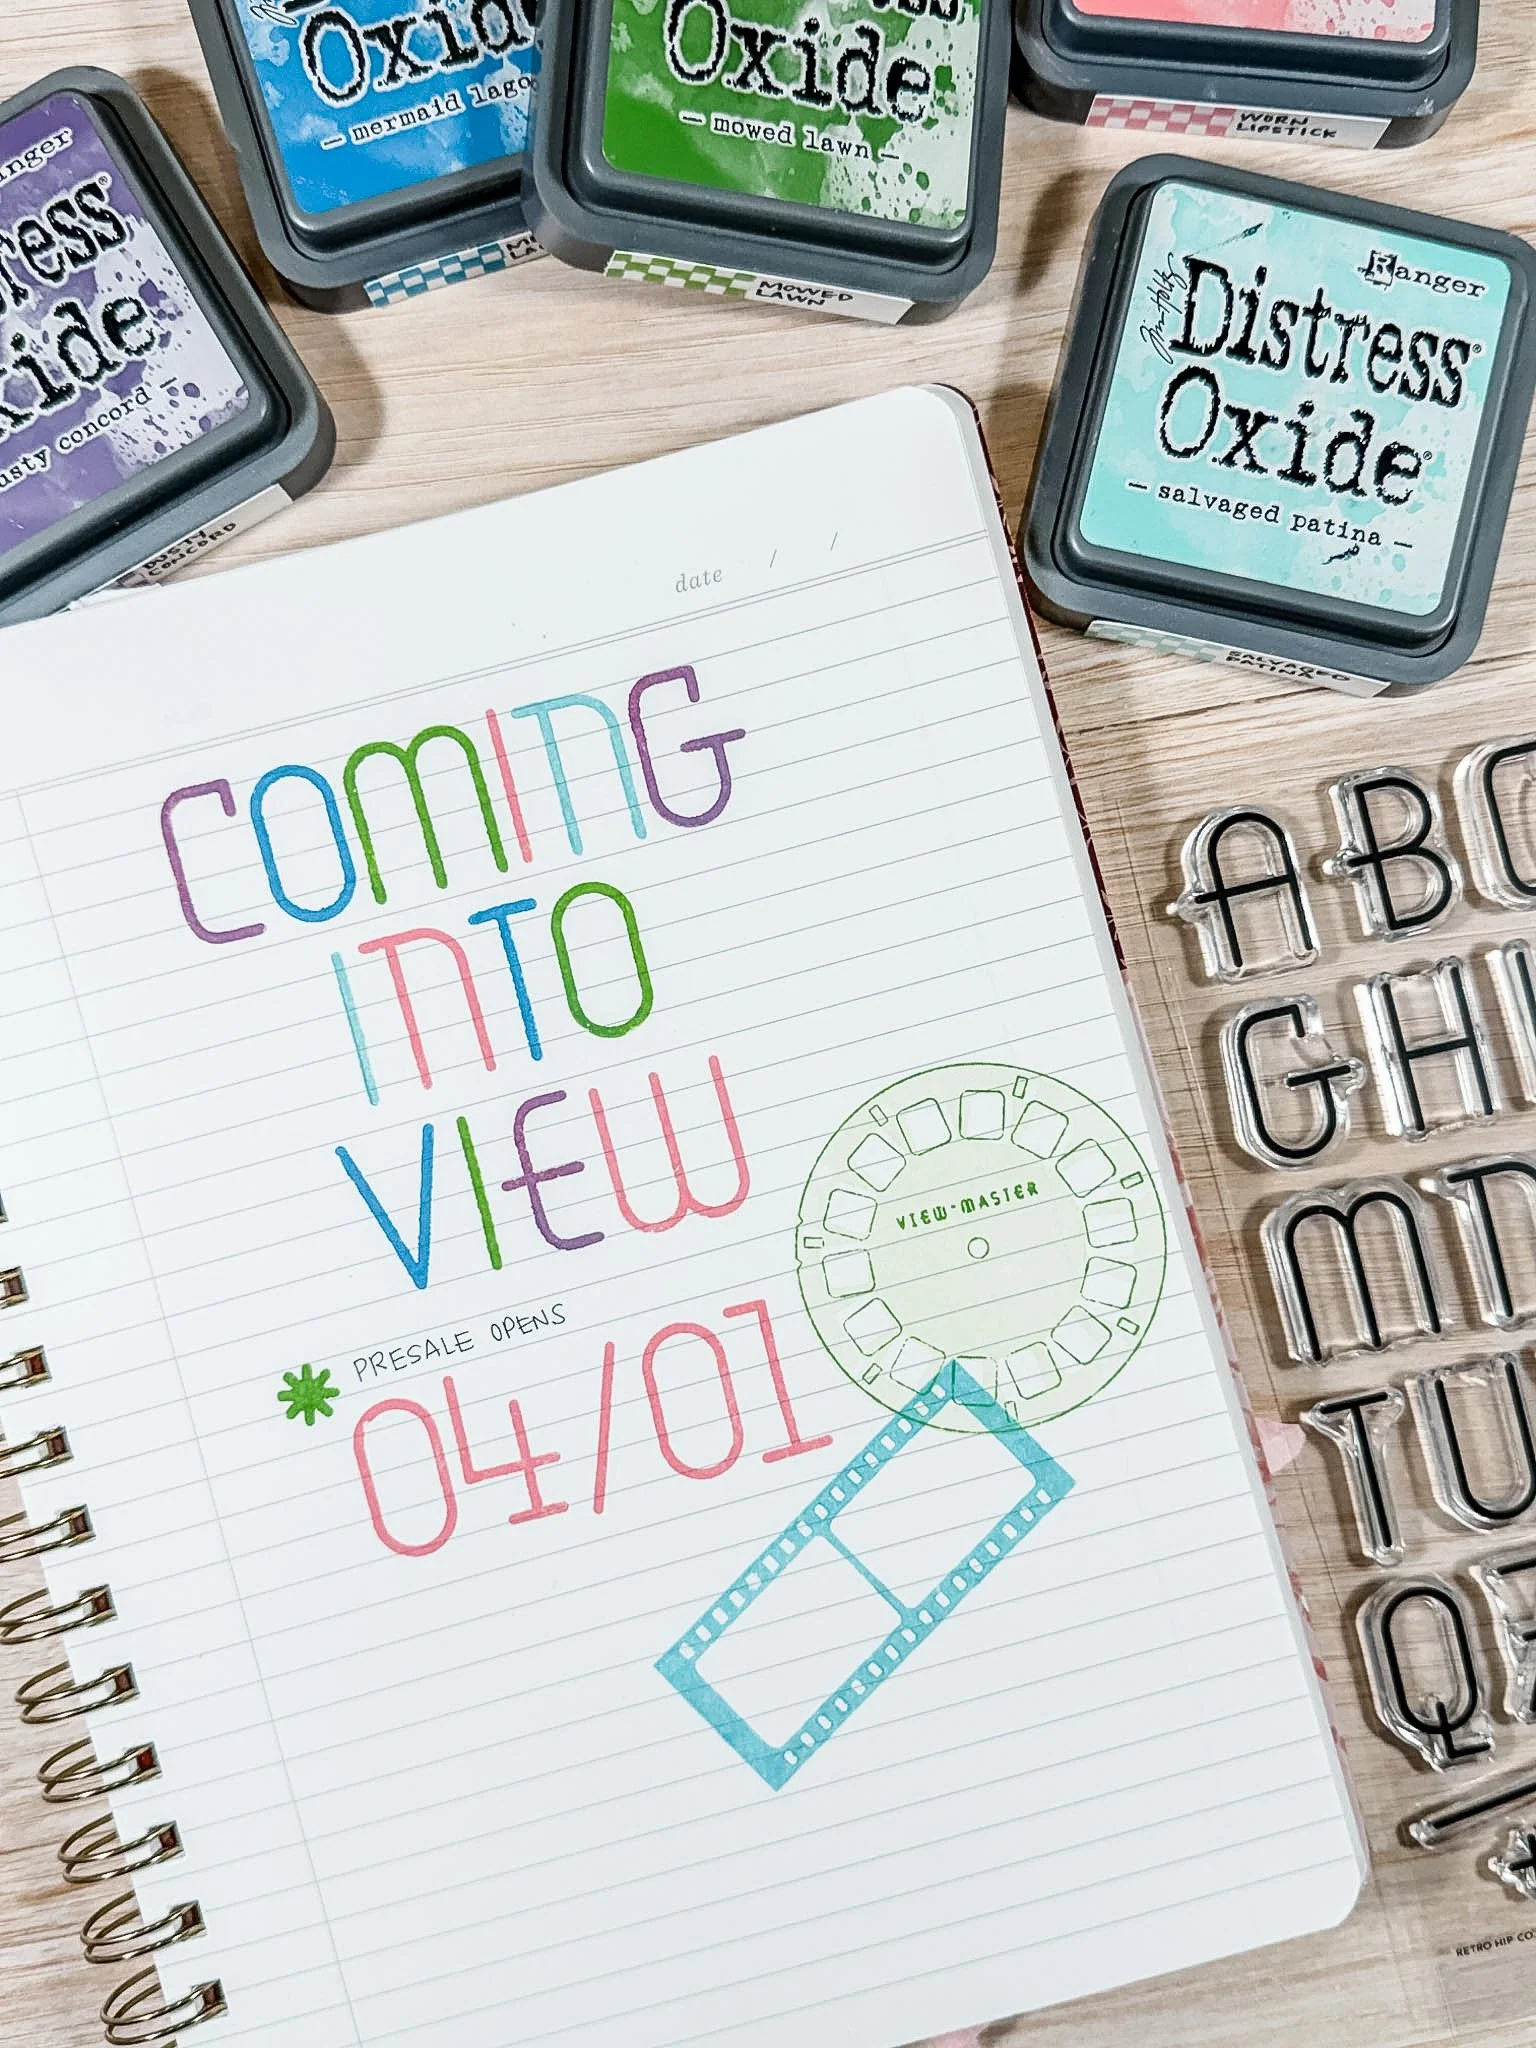 Oxide
— mermaid lago
Oxide
— mowed lawn —
MOWED
LAWN
WORN
LIPSTICK
anger
ress
xide
usty concord —
DUSTY
CONCORD
Tim Holtz
Ranger
Distress®
Oxide®
— salvaged patina —
SALVAGED
PATINA
date / /
COMING
INTO
VIEW
VIEW-MASTER
* PRESALE OPENS
04/01
A B C
G H I
M N
T U
Q
RETRO HIP CO.